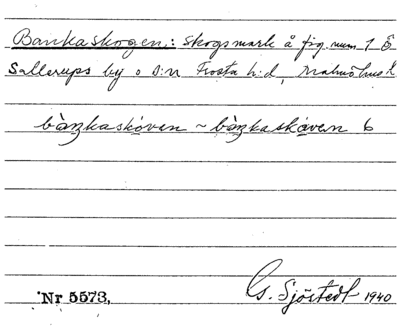 Bankaskogen: skogsmark å fig. num 1 Ö
Sallerups by o s:n Frosta h:d, Malmöhus l.
bàŋkaskóven ~ bàŋkaskáven b
Nr 5573.
G. Sjöstedt 1940